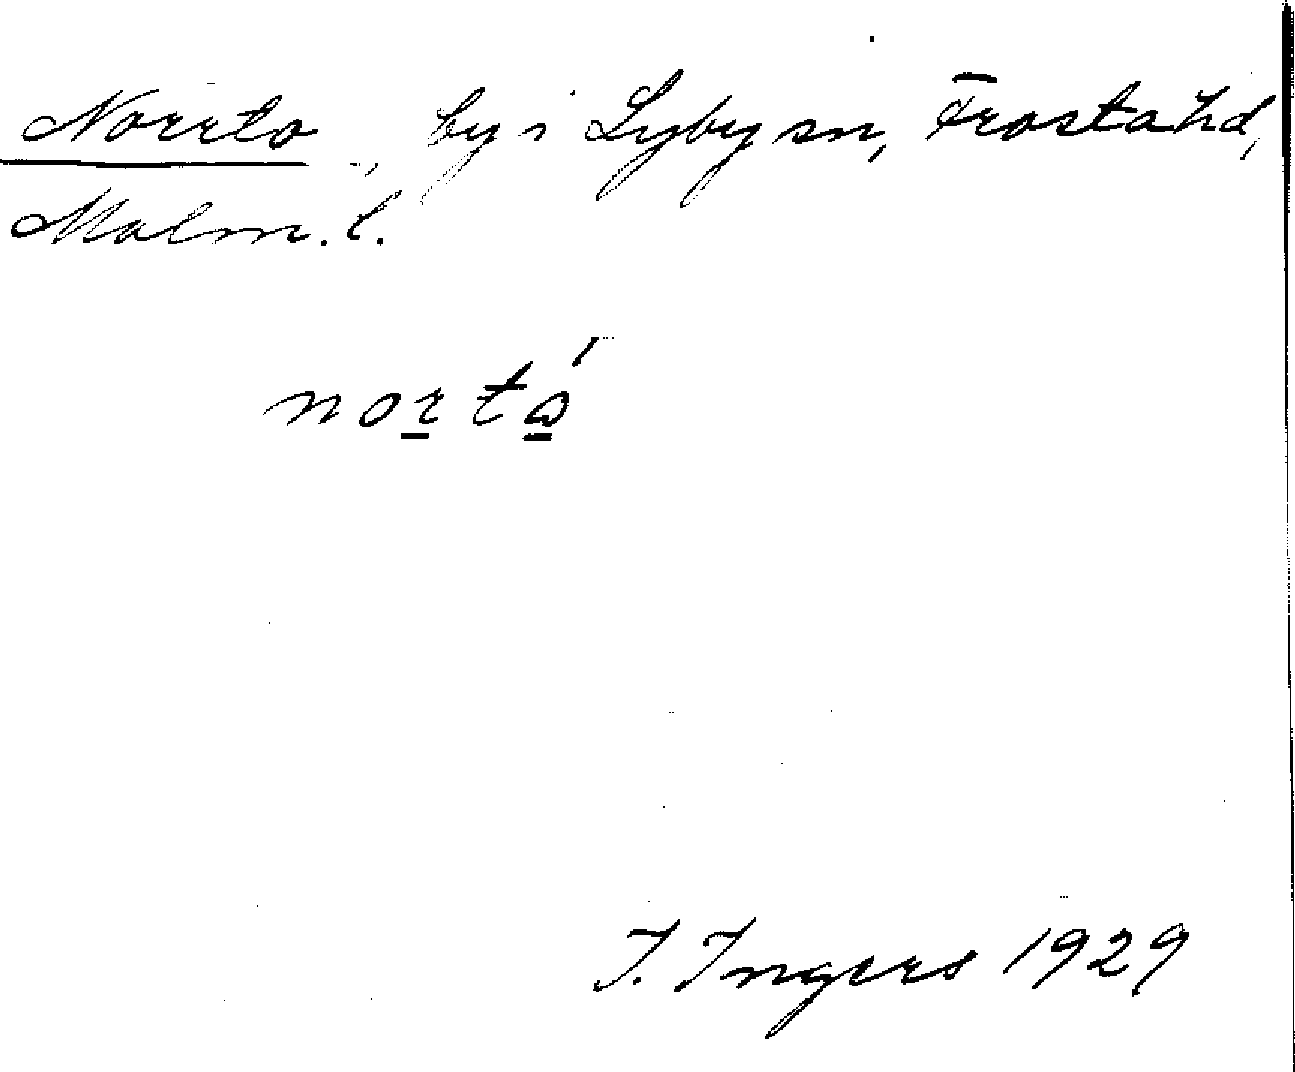 Norrto, by i Lyby sn, Frosta hd,
Malm. l.
nortó
I. Ingers 1929